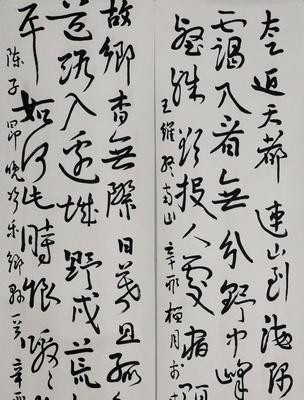 太乙近天都 連山到海隅
靄入看無 分野中峰
壑殊 欲投人處宿
王維 終南山 辛卯 月於
故鄉杳無際 日暮且孤
道路入邊城 野戍荒
平 如何此時恨 噭
陈子昂 晚次樂鄉縣 辛